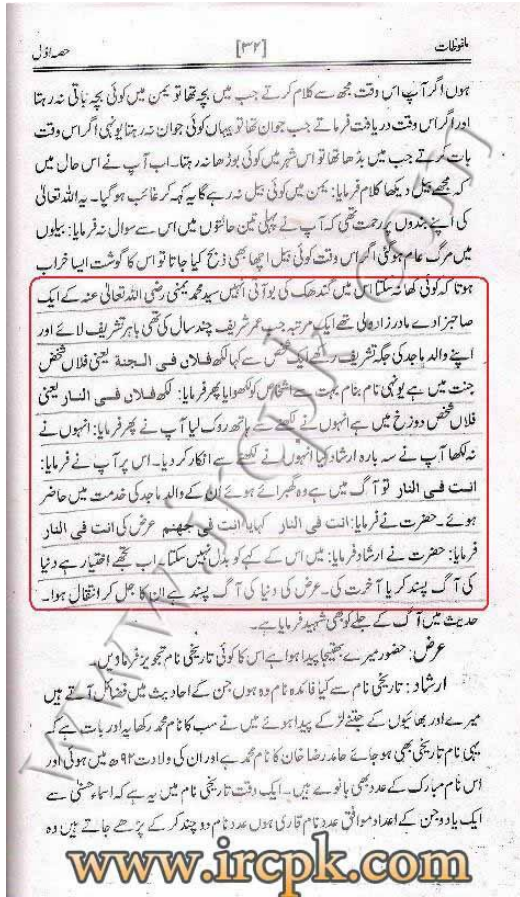 ملفوظات [۳۲] حصہ اوّل
ہوں اگر آپ اس وقت مجھ سے کلام کرتے جب میں بچہ تھا تو یمن میں کوئی بچہ باقی نہ رہتا
اور اگر اس وقت دریافت فرماتے جب جوان تھا تو یہاں کوئی جوان نہ رہتا یونہی اگر اس وقت
بات کرتے جب میں بڈھا تھا تو اس شہر میں کوئی بوڑھا نہ رہتا۔ اب آپ نے اس حال میں
کہ مجھے بیل دیکھا کلام فرمایا: یمن میں کوئی بیل نہ رہے گا یہ کہہ کر غائب ہو گیا۔ یہ اللہ تعالیٰ
کی اپنے بندوں پر رحمت تھی کہ آپ نے پہلی تین حالتوں میں اس سے سوال نہ فرمایا: بیلوں
میں مرگ عام ہو گئی اگر اس وقت کوئی بیل اچھا بھی ذبح کیا جاتا تو اس کا گوشت ایسا خراب
ہوتا کہ کوئی کھا نہ سکتا اس میں گندھک کی بو آتی انہیں سید محمد یمنی رضی اللہ تعالیٰ عنہ کے ایک
صاحبزادے مادر زاد ولی تھے ایک مرتبہ جب عمر شریف چند سال کی تھی باہر تشریف لائے اور
اپنے والد ماجد کی جگہ تشریف رکھی ایک شخص سے کہا لکھ فلان فی الجنة یعنی فلاں شخص
جنت میں ہے یونہی نام بنام بہت سے اشخاص کو لکھوایا پھر فرمایا: لکھ فلان فی النار یعنی
فلاں شخص دوزخ میں ہے انہوں نے لکھنے سے ہاتھ روک لیا آپ نے پھر فرمایا: انہوں نے
نہ لکھا آپ نے سہ بارہ ارشاد کیا انہوں نے لکھنے سے انکار کر دیا۔ اس پر آپ نے فرمایا:
انت فی النار تو آگ میں ہے وہ گھبرائے ہوئے ان کے والد ماجد کی خدمت میں حاضر
ہوئے۔ حضرت نے فرمایا: انت فی النار کہایا انت فی جهنم عرض کی انت فی النار
فرمایا: حضرت نے ارشاد فرمایا: میں اس کے کہے کو بدل نہیں سکتا، اب تجھے اختیار ہے دنیا
کی آگ پسند کر یا آخرت کی۔ عرض کی دنیا کی آگ پسند ہے ان کا جل کر انتقال ہوا۔
حدیث میں آگ کے جلے کو بھی شہید فرمایا ہے۔
عرض: حضور میرے بھتیجا پیدا ہوا ہے اس کا کوئی تاریخی نام تجویز فرما دیں۔
ارشاد: تاریخی نام سے کیا فائدہ نام وہ ہوں جن کے احادیث میں فضائل آتے ہیں
میرے اور بھائیوں کے جتنے لڑکے پیدا ہوئے میں نے سب کا نام محمد رکھا یہ اور بات ہے کہ
یہی نام تاریخی بھی ہو جائے حامد رضا خان کا نام محمد ہے اور ان کی ولادت ۹۲ھ میں ہوئی اور
اس نام مبارک کے عدد بھی بانوے ہیں۔ ایک دقت تاریخی نام میں یہ ہے کہ اسماء حسنٰی سے
ایک یا دو جن کے اعداد موافق عدد نام قاری ہوں عدد نام دو چند کر کے پڑھے جاتے ہیں وہ
www.ircpk.com